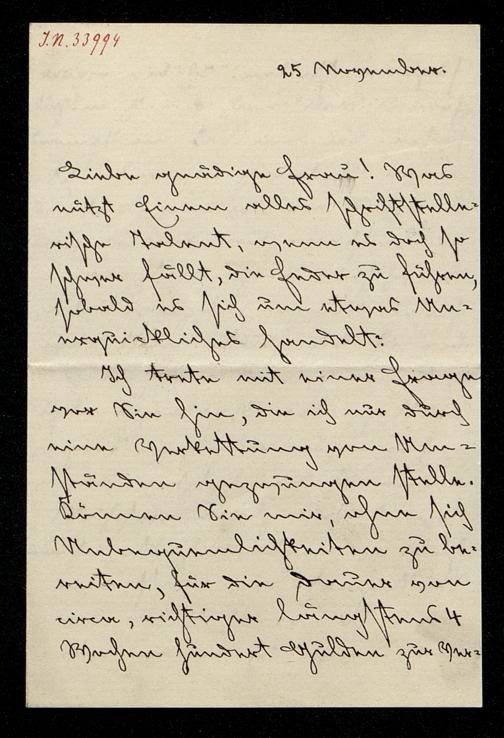 I.N. 33994
25 November.
Liebe gnädige Frau! Was
nützt Einem alles schriftstelle=
rische Talent, wenn es doch so
schwer fällt, die Feder zu führen,
sobald es sich um etwas Un=
erquickliches handelt:
Ich trete mit einer Frage
vor Sie hin, die ich nur durch
eine Verkettung von Um=
ständen gezwungen stelle.
Können Sie mir, ohne sich
Unbequemlichkeiten zu be=
reiten, für die Dauer von
circa, richtiger längstens 4
Wochen hundert Gulden zur Ver=